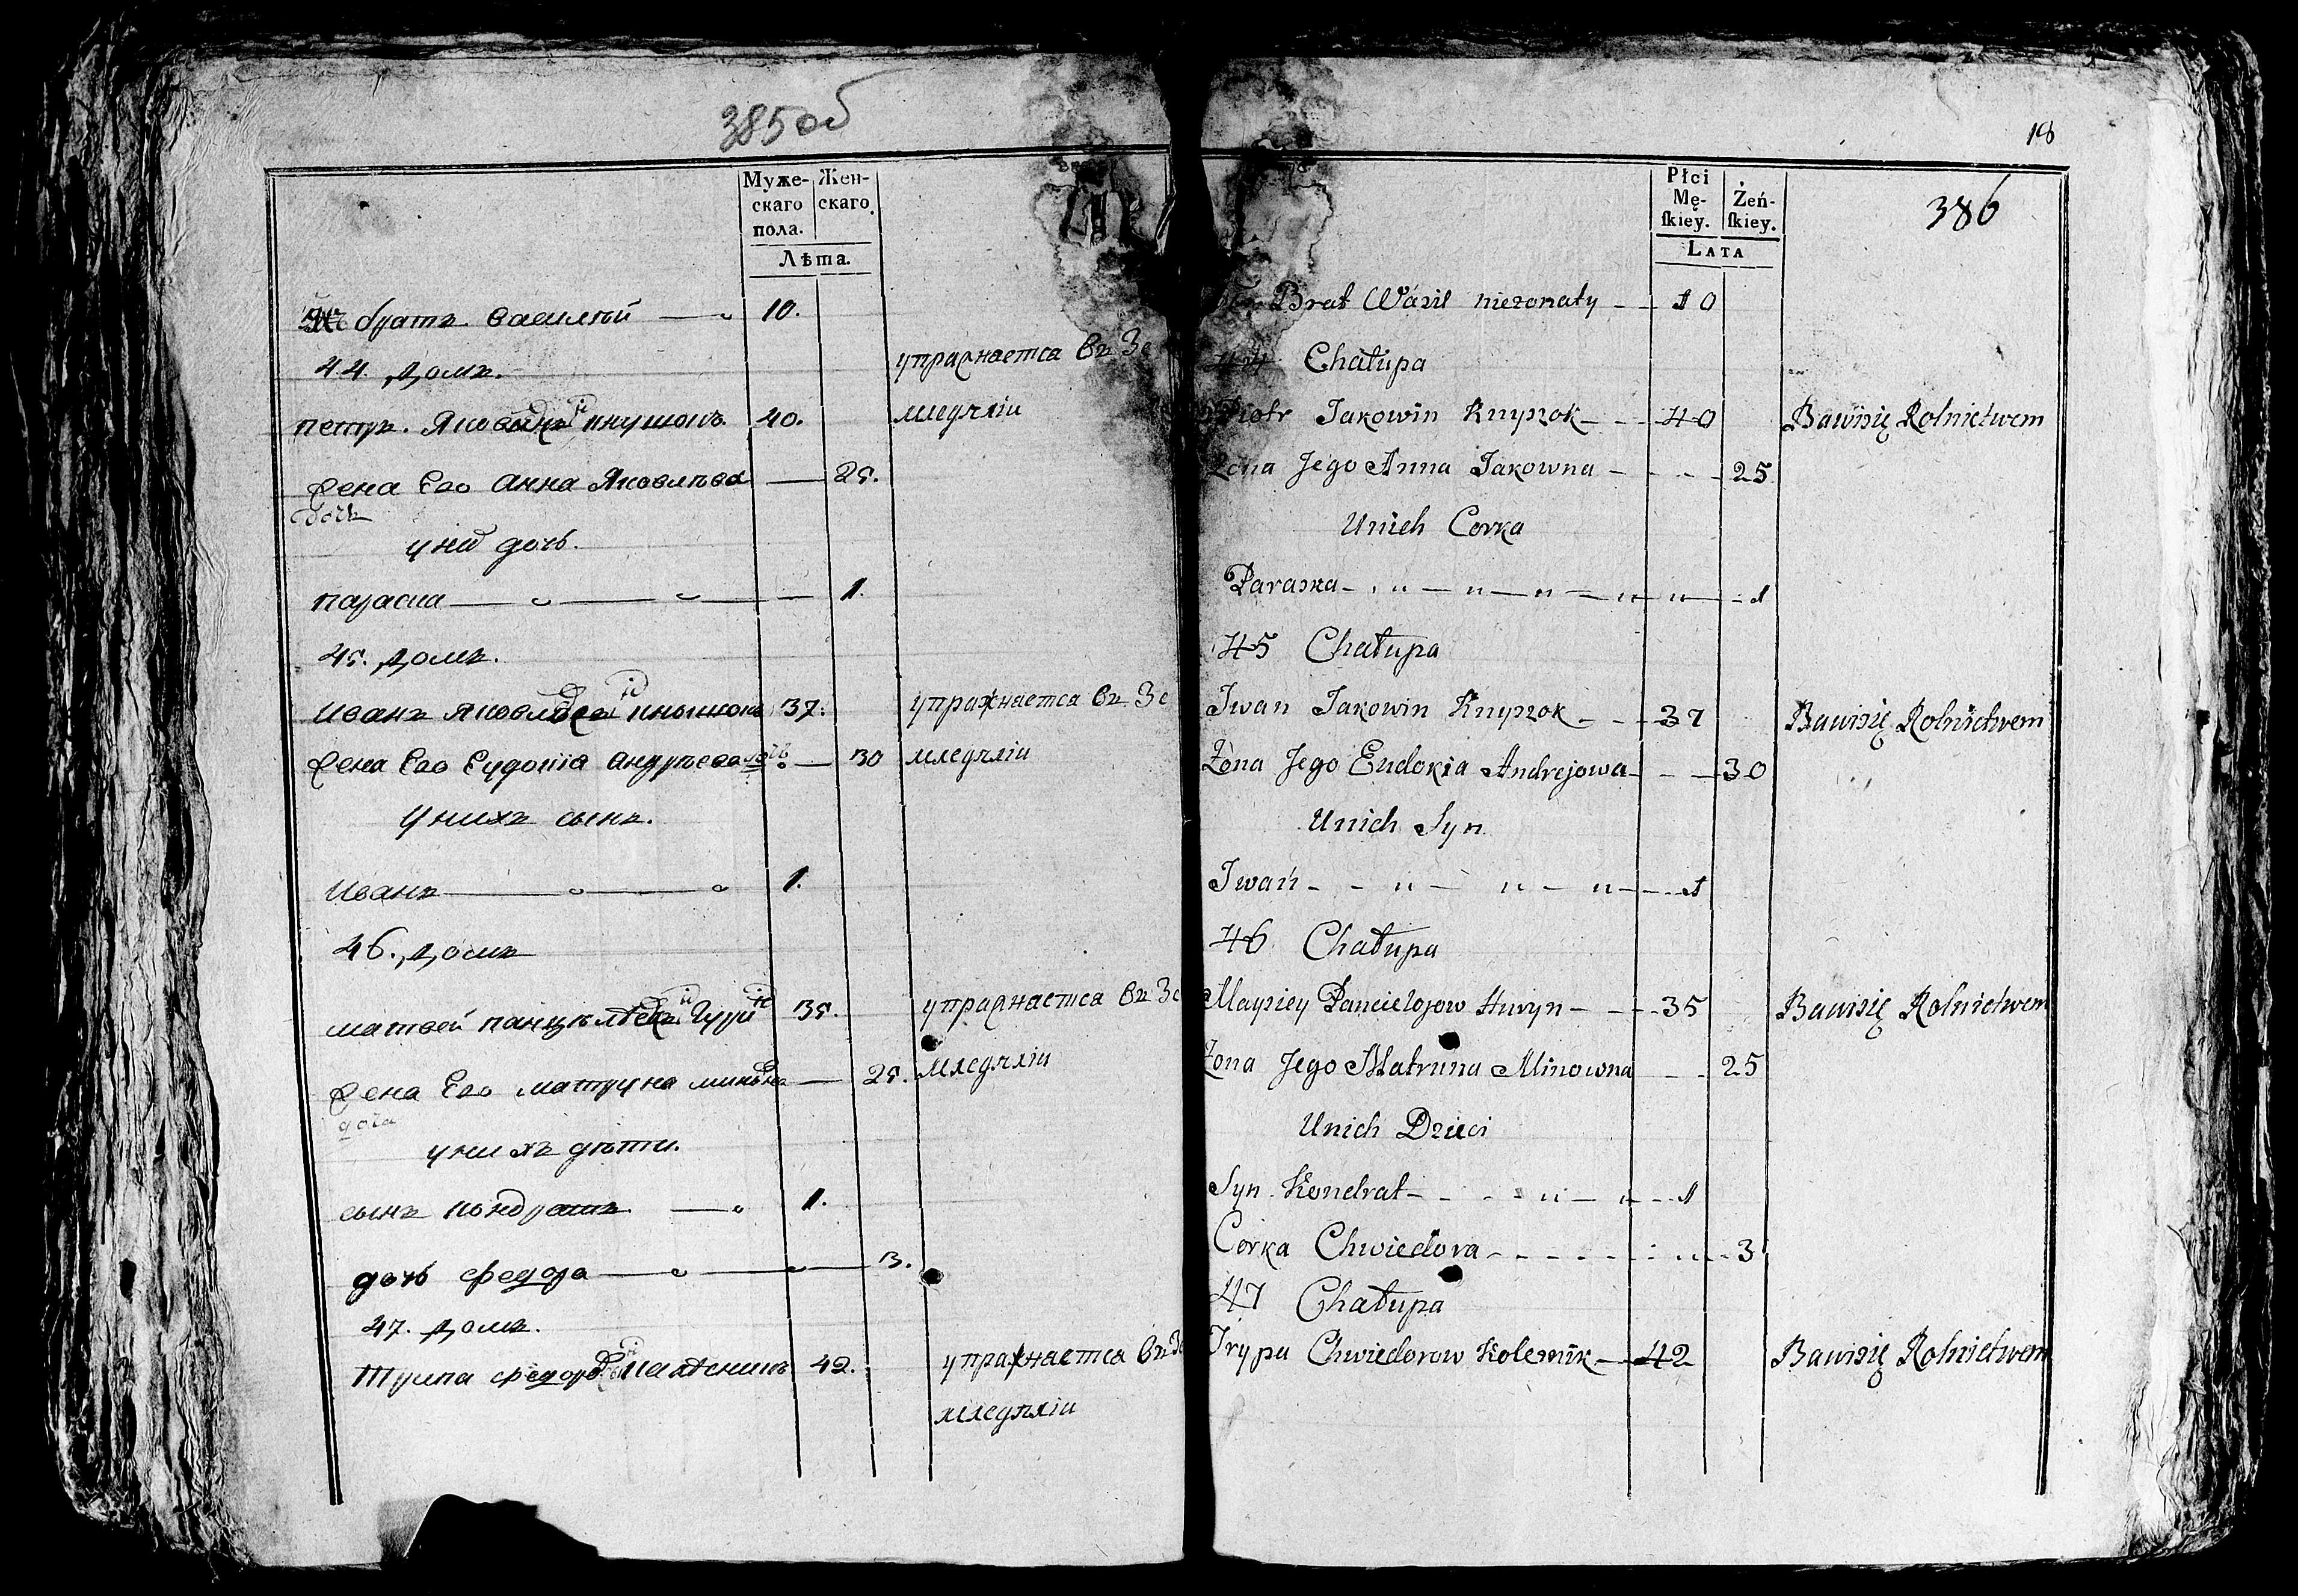 385 об
Муже-
скаго
пола.
Жен-
скаго.
Лѣта.
братъ василѣй 10.
44. домъ.
петръ. Яковлевъ кнушокъ. 40. упражнается въ Зе
мледѣліи
жена Его анна Яковлѣва 25.
дочь
у них дочь.
параска 1.
45. домъ.
иванъ яковлевъ кнышокъ 37. упражнается въ Зе
жена Его Еудокiя андрѣева дочь 30 мледѣліи
у нихъ сынъ.
иванъ 1.
46. домъ
матвей панцѣлѣевъ Гурин 35. упражнается въ Зе
жена Его матруна минова 25. мледѣліи
доча
у нихъ дѣти.
сынъ кондратъ 1.
дочь федора 3.
47. домъ.
трипа федоровъ калѣсникъ 42. упражнается въ Зе
мледѣліи
18
386
Płci
Mę-
ſkiey.
Żeń-
ſkiey.
LATA
Brat Wasil niezonaty 10
44 Chałupa
Piotr Jakowin Knyszok 40 Bawisię Rolnictwem
Zona Jego Anna Jakowna 25
Unich Corka
Paraska 1
45 Chałupa
Iwan Jakowin Knyszok 37 Bawisię Rolnictwem
Żona Jego Eudokia Andrejowa 30
Unich Syn
Iwań 1
46 Chałupa
Maysiey Pancielojow Huryn 35 Bawisię Rolnictwem
Zona Jego Matruna Minowna 25
Unich Dzieci
Syn Kondrat 1
Corka Chwiedora 3
47 Chałupa
Trypa Chwiedorow Kolesnik 42 Bawisię Rolnictwem